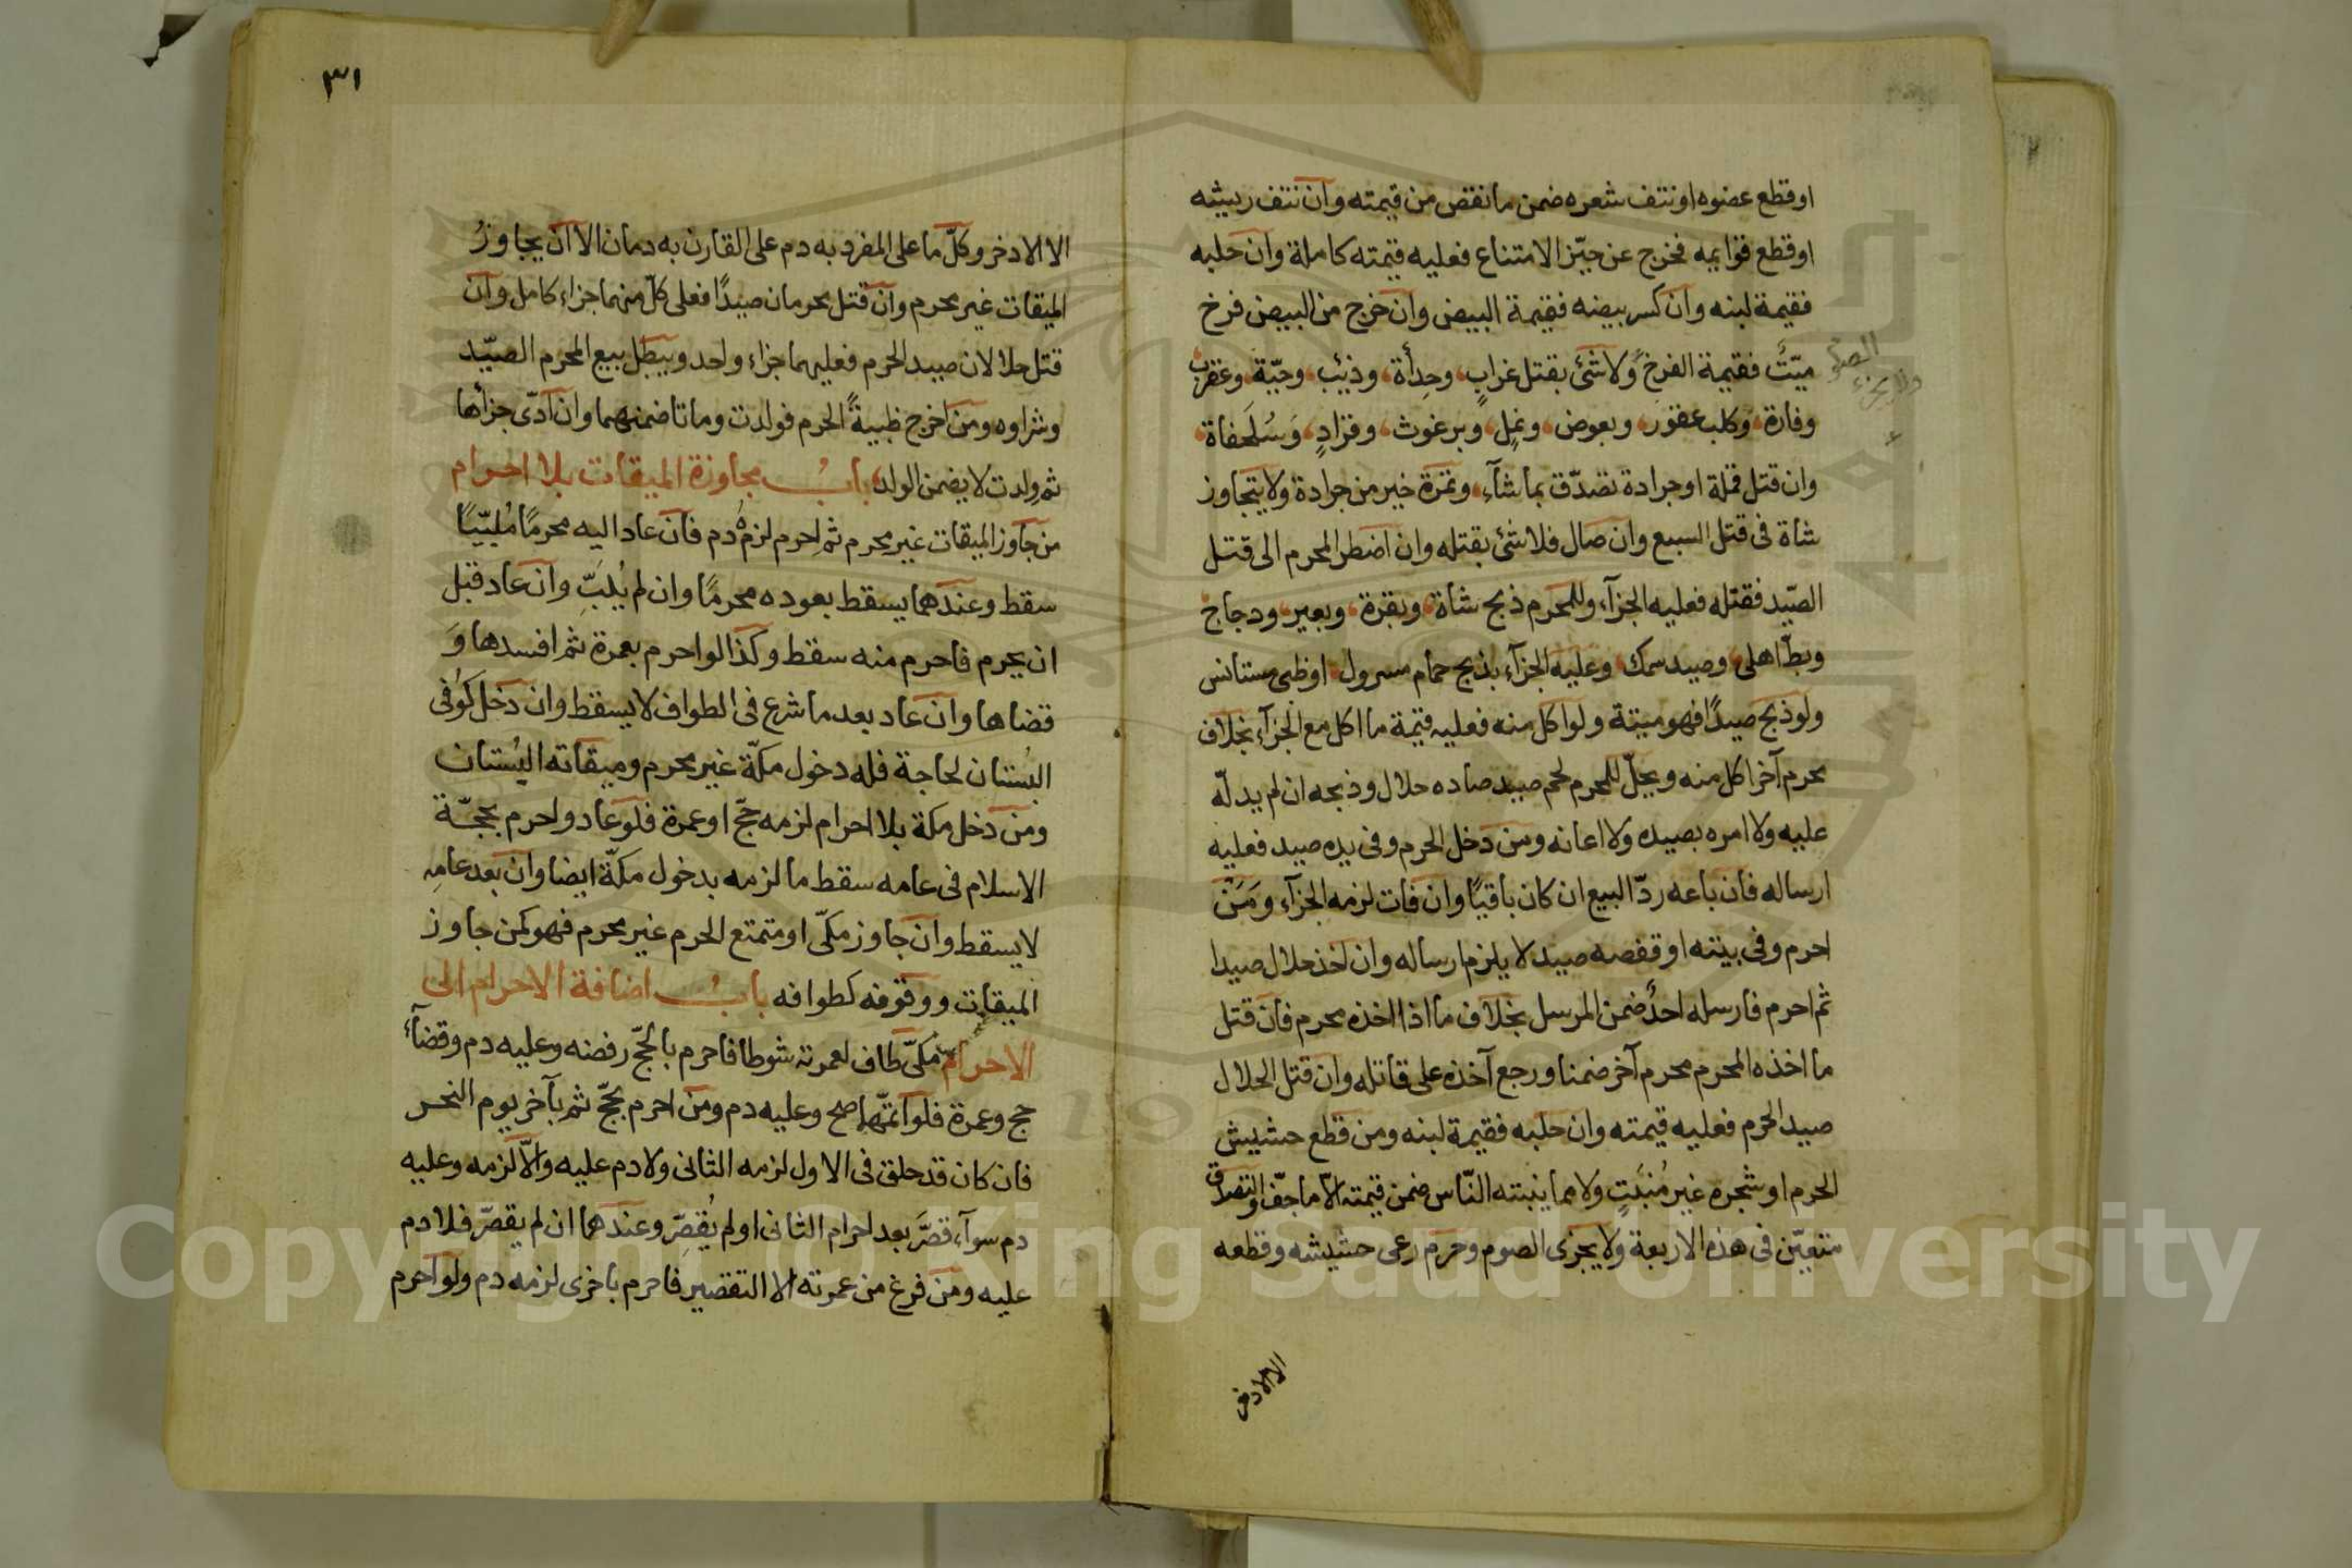 او قطع عضوه او نتف شعره ضمن ما نقص من قيمته وان نتف ريشه
او قطع قوايمه فخرج عن حيّز الامتناع فعليه قيمته كاملة وان حلبه
فقيمة لبنه وان كسر بيضه فقيمة البيض وان خرج من البيض فرخ
ميّتٌ فقيمة الفرخ ولا شئ بقتل غراب وحدأة وذئب وحيّة وعقرب
وفارة وكلب عقور وبعوض ونمل وبرغوث وقراد وسُلَحفاة
وان قتل قملة او جرادة تصدّق بما شآء وتمرة خير من جرادة ولا يتجاوز
شاة فى قتل السبع وان صال فلا شئ بقتله وان اضطر المحرم الى قتل
الصّيد فقتله فعليه الجزآء وللمحرم ذبح شاة وبقرة وبعير ودجاج
وبطّ اهلى وصيد سمك وعليه الجزآء بذبح حمام مسرول او ظبى مستانس
ولو ذبح صيدًا فهو ميتة ولو اكل منه فعليه قيمة ما اكل مع الجزآء بخلاف
محرم آخر اكل منه ويحلّ للمحرم لحم صيد صاده حلال وذبحه ان لم يدلّه
عليه ولا امره بصيده ولا اعانه ومن دخل الحرم وفى يده صيد فعليه
ارساله فان باعه ردّ البيع ان كان باقيًا وان فات لزمه الجزآء ومَنْ
احرم وفى بيته او قفصه صيد لا يلزم ارساله وان اخذ حلال صيدا
ثم احرم فارسله احدٌ ضمن المرسل بخلاف ما اذا اخذه محرم فان قتل
ما اخذه المحرم محرم آخر ضمنا ورجع آخذه على قاتله وان قتل الحلال
صيد الحرم فعليه قيمته وان حلبه فقيمة لبنه ومن قطع حشيش
الحرم او شجره غير مُنبَتٍ ولا مما ينبته النّاس ضمن قيمته الّا ما جفّ والتصدق
متعيّن فى هذه الاربعة ولا يجزى الصوم وحرم رعى حشيشه وقطعه
الا الاذخر
٣١
الا الاذخر وكلّ ما على المفرد به دم على القارن به دمان الا ان يجاوزُ
الميقات غير محرم وان قتل محرمان صيدًا فعلى كلّ منهما جزاء كامل وان
قتل حلالان صيد الحرم فعليهما جزاء واحد ويبطل بيع المحرم الصّيد
وشراوه ومن اخرج ظبيةً الحرم فولدت وماتا ضمنهما وان ادّى جزأها
ثم ولدت لا يضمن الولد بابُ مجاوزة الميقات بلا احرام
من جاوز الميقات غير محرم ثم احرم لزمهُ دم فان عاد اليه محرمًا مُلبّيًا
سقط وعندهما يسقط بعوده محرمًا وان لم يُلَبِّ وان عاد قبل
ان يحرم فاحرم منه سقط وكذا لو احرم بعمرة ثم افسدها وَ
قضاها وان عاد بعد ما شرع فى الطواف لا يسقط وان دخل كوفى
البُستان لحاجة فله دخول مكّة غير محرم وميقاته البُستان
ومن دخل مكة بلا احرام لزمه حجّ او عمرة فلو عاد واحرم بحجّة
الاسلام فى عامه سقط ما لزمه بدخول مكّة ايضا وان بعد عامه
لا يسقط وان جاوز مكّى او متمتع الحرم غير محرم فهو كمن جاوز
الميقات ووقوفه كطوافه بابُ اضافة الاحرام الى
الاحرام مكىّ طاف لعمرته شوطا فاحرم بالحجّ رفضه وعليه دم وقضآء
حج وعمرة فلو اتمّهما صح وعليه دم ومن احرم بحجّ ثم بآخر يوم النحر
فان كان قد حلق فى الاول لزمه الثانى ولا دم عليه والّا لزمه وعليه
دم سوآء قصَّر بعد احرام الثانى او لم يُقصِّر وعندهما ان لم يقصّر فلا دم
عليه ومن فرغ من عمرته الا التقصير فاحرم باخرى لزمه دم ولو احرم
Copyright © King Saud University